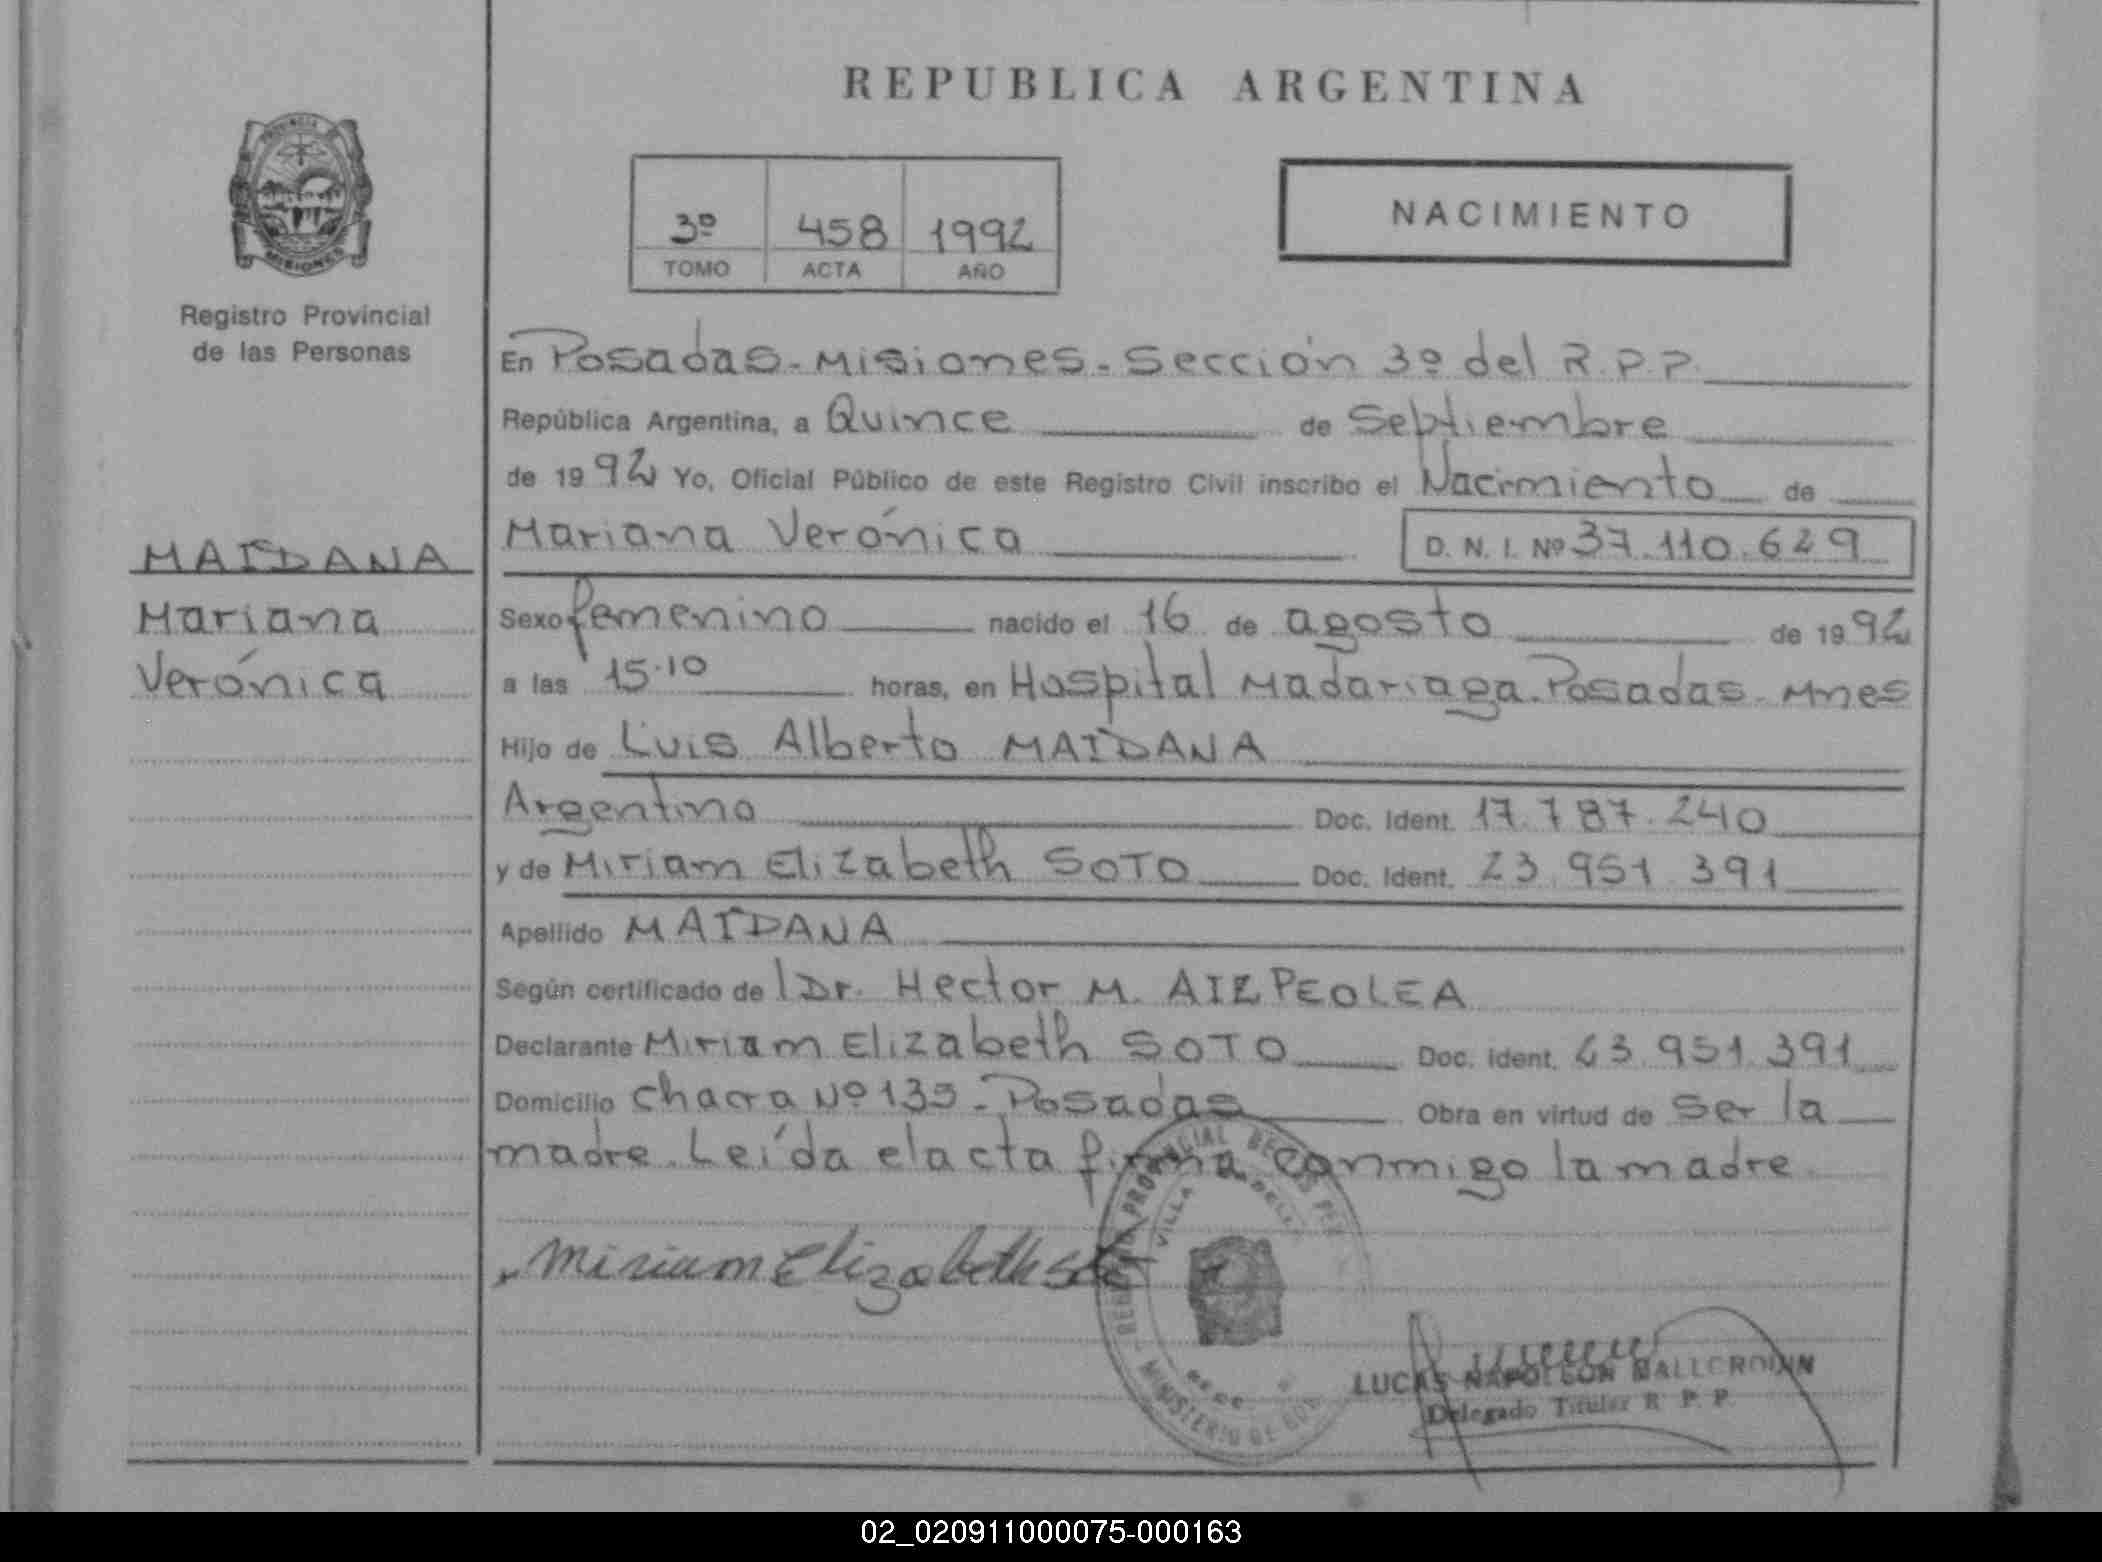 REPUBLICA ARGENTINA
PROVINCIA DE
MISIONES
Registro Provincial
de las Personas
3º 458 1992
TOMO ACTA AÑO
NACIMIENTO
En Posadas-Misiones-Sección 3º del R.P.P.
República Argentina, a Quince de Septiembre
de 1992 Yo, Oficial Público de este Registro Civil inscribo el Nacimiento de
MAIDANA
Mariana
Verónica
Mariana Verónica D. N. I. Nº 37.110.629
Sexo femenino nacido el 16 de agosto de 1992
a las 15.10 horas, en Hospital Madariaga.Posadas-Mnes
Hijo de Luis Alberto MAIDANA
Argentino Doc. Ident. 17.787.240
y de Miriam Elizabeth SOTO Doc. Ident. 23.951.391
Apellido MAIDANA
Según certificado de l Dr. Hector M. AIZPEOLEA
Declarante Miriam Elizabeth SOTO Doc. Ident. 23.951.391
Domicilio Chacra Nº 133-Posadas Obra en virtud de Ser la
madre. Leída el acta firma conmigo la madre
Miriam Elizabeth Soto
PROVINCIAL
VILLA
MINISTERIO DE
LUCAS NAPOLEON
Delegado Titular R. P. P.
02_020911000075-000163